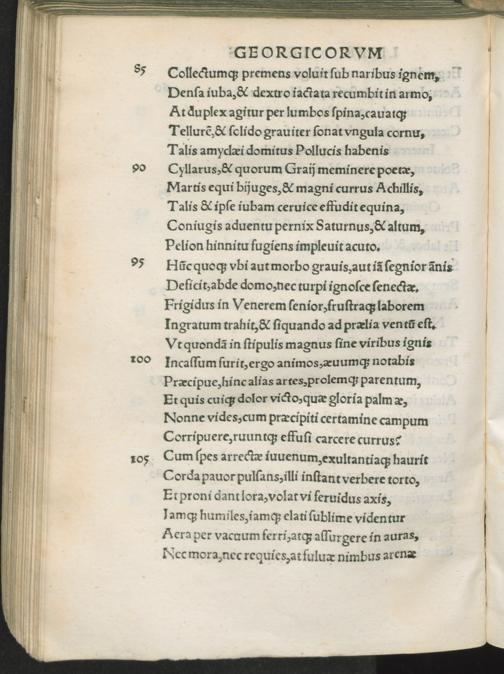 GEORGICORVM
85 Collectumq; premens voluit sub naribus ignem,
Densa iuba,& dextro iactata recumbit in armo,
At duplex agitur per lumbos spina,cauatq;
Tellurē,& solido grauiter sonat vngula cornu,
Talis amyclæi domitus Pollucis habenis
90 Cyllarus,& quorum Graij meminere poetæ,
Martis equi bijuges,& magni currus Achillis,
Talis & ipse iubam ceruice effudit equina,
Coniugis aduentu pernix Saturnus,& altum,
Pelion hinnitu fugiens impleuit acuto.
95 Hūc quoq; vbi aut morbo grauis,aut iā segnior ānis
Deficit,abde domo,nec turpi ignosce senectæ.
Frigidus in Venerem senior,frustraq; laborem
Ingratum trahit,& siquando ad prælia ventū est,
Vt quondā in stipulis magnus sine viribus ignis
100 Incassum furit,ergo animos,æuumq; notabis
Præcipue,hinc alias artes,prolemq; parentum,
Et quis cuiq; dolor victo,quæ gloria palmæ,
Nonne vides,cum præcipiti certamine campum
Corripuere,ruuntq; effusi carcere currus?
105 Cum spes arrectæ iuuenum,exultantiaq; haurit
Corda pauor pulsans,illi instant verbere torto,
Et proni dant lora,volat vi feruidus axis,
Iamq; humiles,iamq; elati sublime videntur
Aera per vacuum ferri,atq; assurgere in auras,
Nec mora,nec requies,at fuluæ nimbus arenæ